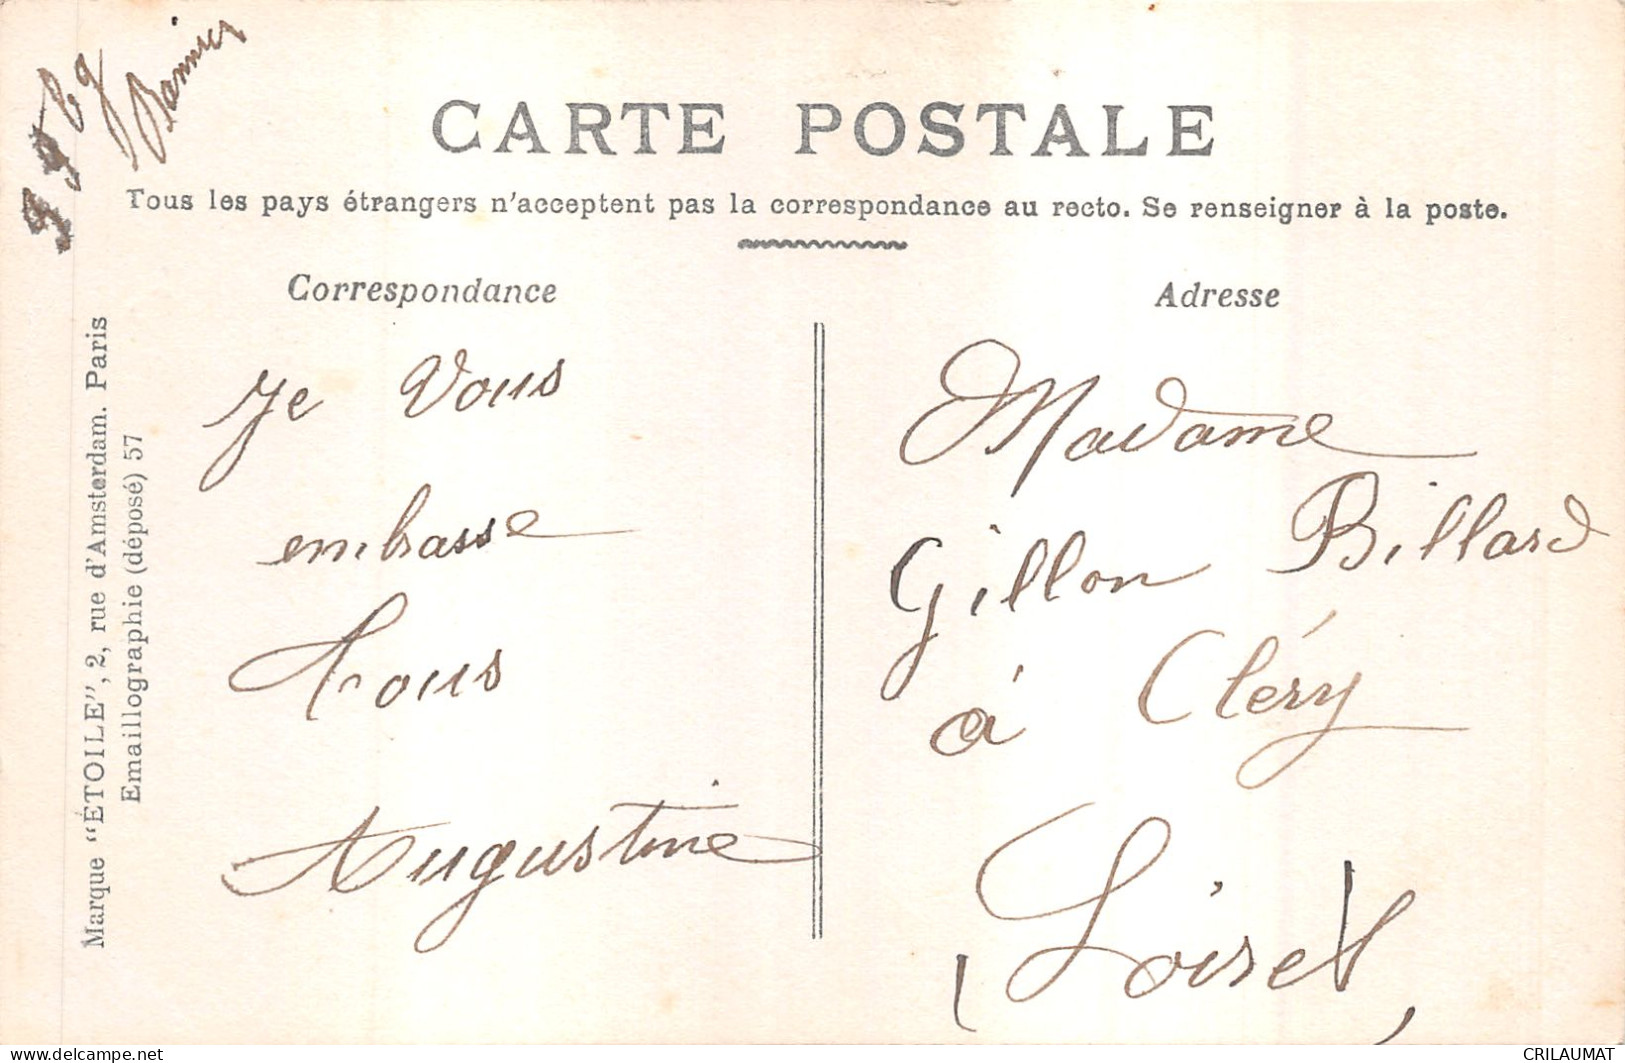 CARTE POSTALE
Tous les pays étrangers n'acceptent pas la correspondance au recto. Se renseigner à la poste.
Correspondance
Je Vous
embrasse
tous
Augustine
Adresse
Madame
Gillon Billard
à Cléry
Loiret
Marque "ÉTOILE", 2, rue d'Amsterdam. Paris
Emaillographie (déposé) 57
CRILAUMAT